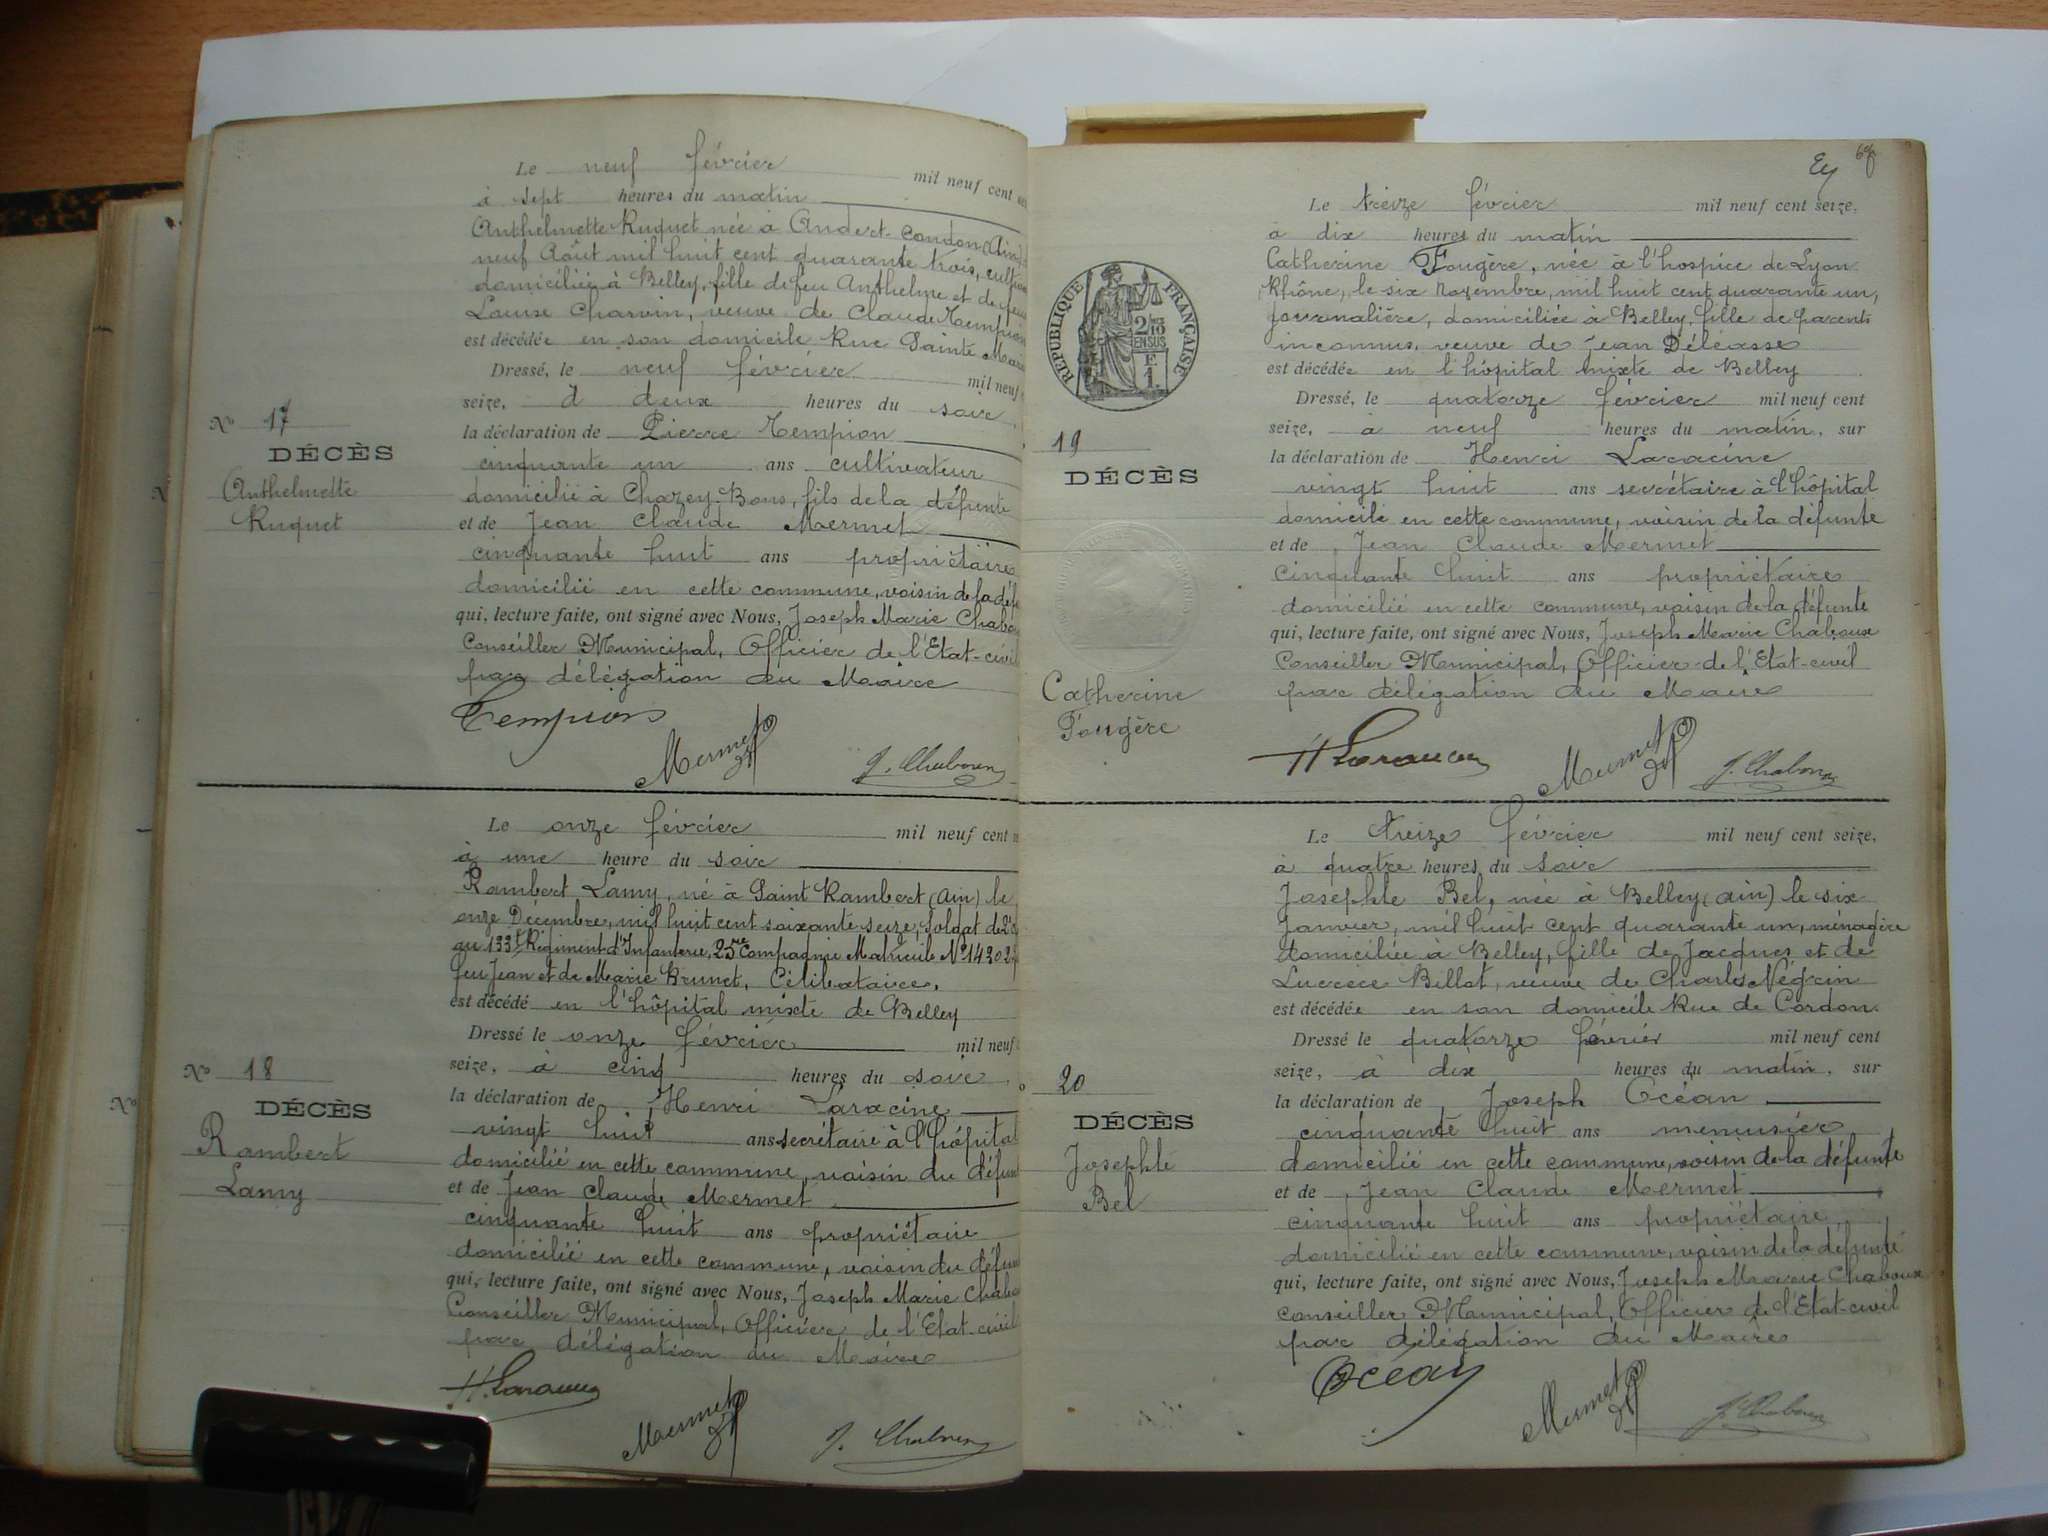 Le neuf février mil neuf cent
à sept heures du matin
Anthelmette Ruquet née à Andert-Condon (Ain)
neuf Août mil huit cent quarante trois,
domiciliée à Belley, fille de feu Anthelme et de feue
Louise Charvin, veuve de Claude Tempion
est décédée en son domicile Rue Sainte Marie
Dressé, le neuf février mil neuf
seize, à deux heures du soir
la déclaration de Pierre Tempion
cinquante un ans cultivateur
domicilié à Chazey-Bons, fils de la défunte
et de Jean Claude Mermet
cinquante huit ans propriétaire
domicilié en cette commune, voisin de la
qui, lecture faite, ont signé avec Nous, Joseph Marie
Conseiller Municipal, Officier de l'Etat-civil
par délégation du Maire
Tempion
Mermet
J. Chaboux
No 17
DÉCÈS
Anthelmette
Ruquet
Le onze février mil neuf cent
à une heure du soir
Rambert Lamy, né à Saint Rambert (Ain) le
onze Décembre, mil huit cent soixante seize, Soldat de 2e
au 133e Régiment d'Infanterie, 25me Compagnie Matricule No 14202
feu Jean et de Marie Brunet, Célibataire,
est décédé en l'hôpital mixte de Belley
Dressé le onze février mil neuf
seize, à cinq heures du soir
la déclaration de Henri Laracine
vingt huit ans secrétaire à l'hôpital
domicilié en cette commune, voisin du
et de Jean Claude Mermet
cinquante huit ans propriétaire
domicilié en cette commune, voisin du
qui, lecture faite, ont signé avec Nous, Joseph Marie
Conseiller Municipal, Officier de l'Etat-civil
par délégation du Maire
H. Laracine
Mermet
J. Chaboux
No 18
DÉCÈS
Rambert
Lamy
Le treize février mil neuf cent seize,
à dix heures du matin
Catherine Fougère, née à l'hospice de Lyon
Rhône, le six Novembre, mil huit cent quarante un,
journalière, domiciliée à Belley, fille de parents
inconnus, veuve de Jean Déléasse
est décédée en l'hôpital mixte de Belley
Dressé, le quatorze février mil neuf cent
seize, à neuf heures du matin, sur
la déclaration de Henri Laracine
vingt huit ans secrétaire à l'hôpital
domicilié en cette commune, voisin de la défunte
et de Jean Claude Mermet
cinquante huit ans propriétaire
domicilié en cette commune, voisin de la défunte
qui, lecture faite, ont signé avec Nous, Joseph Marie Chaboux
Conseiller Municipal, Officier de l'Etat-civil
par délégation du Maire
H Laracine
Mermet
J. Chaboux
RÉPUBLIQUE FRANÇAISE
2/10
EN SUS
E
1.
19
DÉCÈS
Catherine
Fougère
Le treize février mil neuf cent seize,
à quatre heures du soir
Josephte Bel, née à Belley (Ain) le six
Janvier, mil huit cent quarante un, ménagère
domiciliée à Belley, fille de Jacques et de
Lucrece Billot, veuve de Charles Négrin
est décédée en son domicile Rue de Cordon.
Dressé le quatorze février mil neuf cent
seize, à dix heures du matin, sur
la déclaration de Joseph Océan
cinquante huit ans menuisier
domicilié en cette commune, voisin de la défunte
et de Jean Claude Mermet
cinquante huit ans propriétaire
domicilié en cette commune, voisin de la défunte
qui, lecture faite, ont signé avec Nous, Joseph Marie Chaboux
Conseiller Municipal, Officier de l'Etat-civil
par délégation du Maire
Océan
Mermet
J. Chaboux
20
DÉCÈS
Josephte
Bel